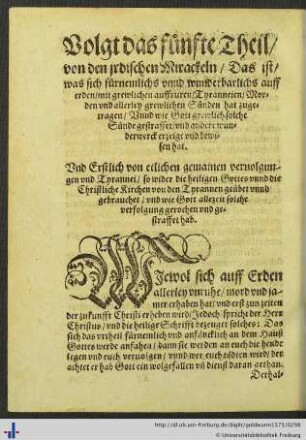 Volgt das fünfte Theil/
von den jrdischen Mirackeln / Das ist/
was sich fürnemlichs vnnd wunderbarlichs auff
erden/mit grewlichen auffrüren/Tyranneien/ Mor-
den vnd allerley grewlichen Sünden hat zuge-
tragen / Vnnd wie Gott grewlich solche
Sünde gestraffet/vnd andere wun-
derwerck erzeigt vnd bewi-
sen hat.
Vnd Erstlich von etlichen gemainen veruolgun-
gen vnd Tyrannei / so wider die heiligen Gottes vnnd die
Christliche Kirchen von den Tyrannen geübet vnnd
gebrauchet / vnd wie Gott allezeit solche
verfolgung gerochen vnd ge-
straffet hab.
WJewol sich auff Erden
allerley vnruhe / mord vnd ja-
mer erhaben hat / vnd erst zun zeiten
der zukunfft Christi erheben wird/Jedoch spricht der Herr
Christus / vnd die heilige Schrifft bezeuget solches: Das
sich das vrtheil fürnemlich vnd anfäncklich an dem Hauß
Gottes werde anfahen / dann sie werden an euch die hende
legen vnd euch veruolgen / vnnd wer euch tödten wird / der
achtet er hab Gott ein wolgefallen vñ dienst daran gethan.
Derhal-
http://dl.ub.uni-freiburg.de/diglit/goldwurm1573/0298
© Universitätsbibliothek Freiburg